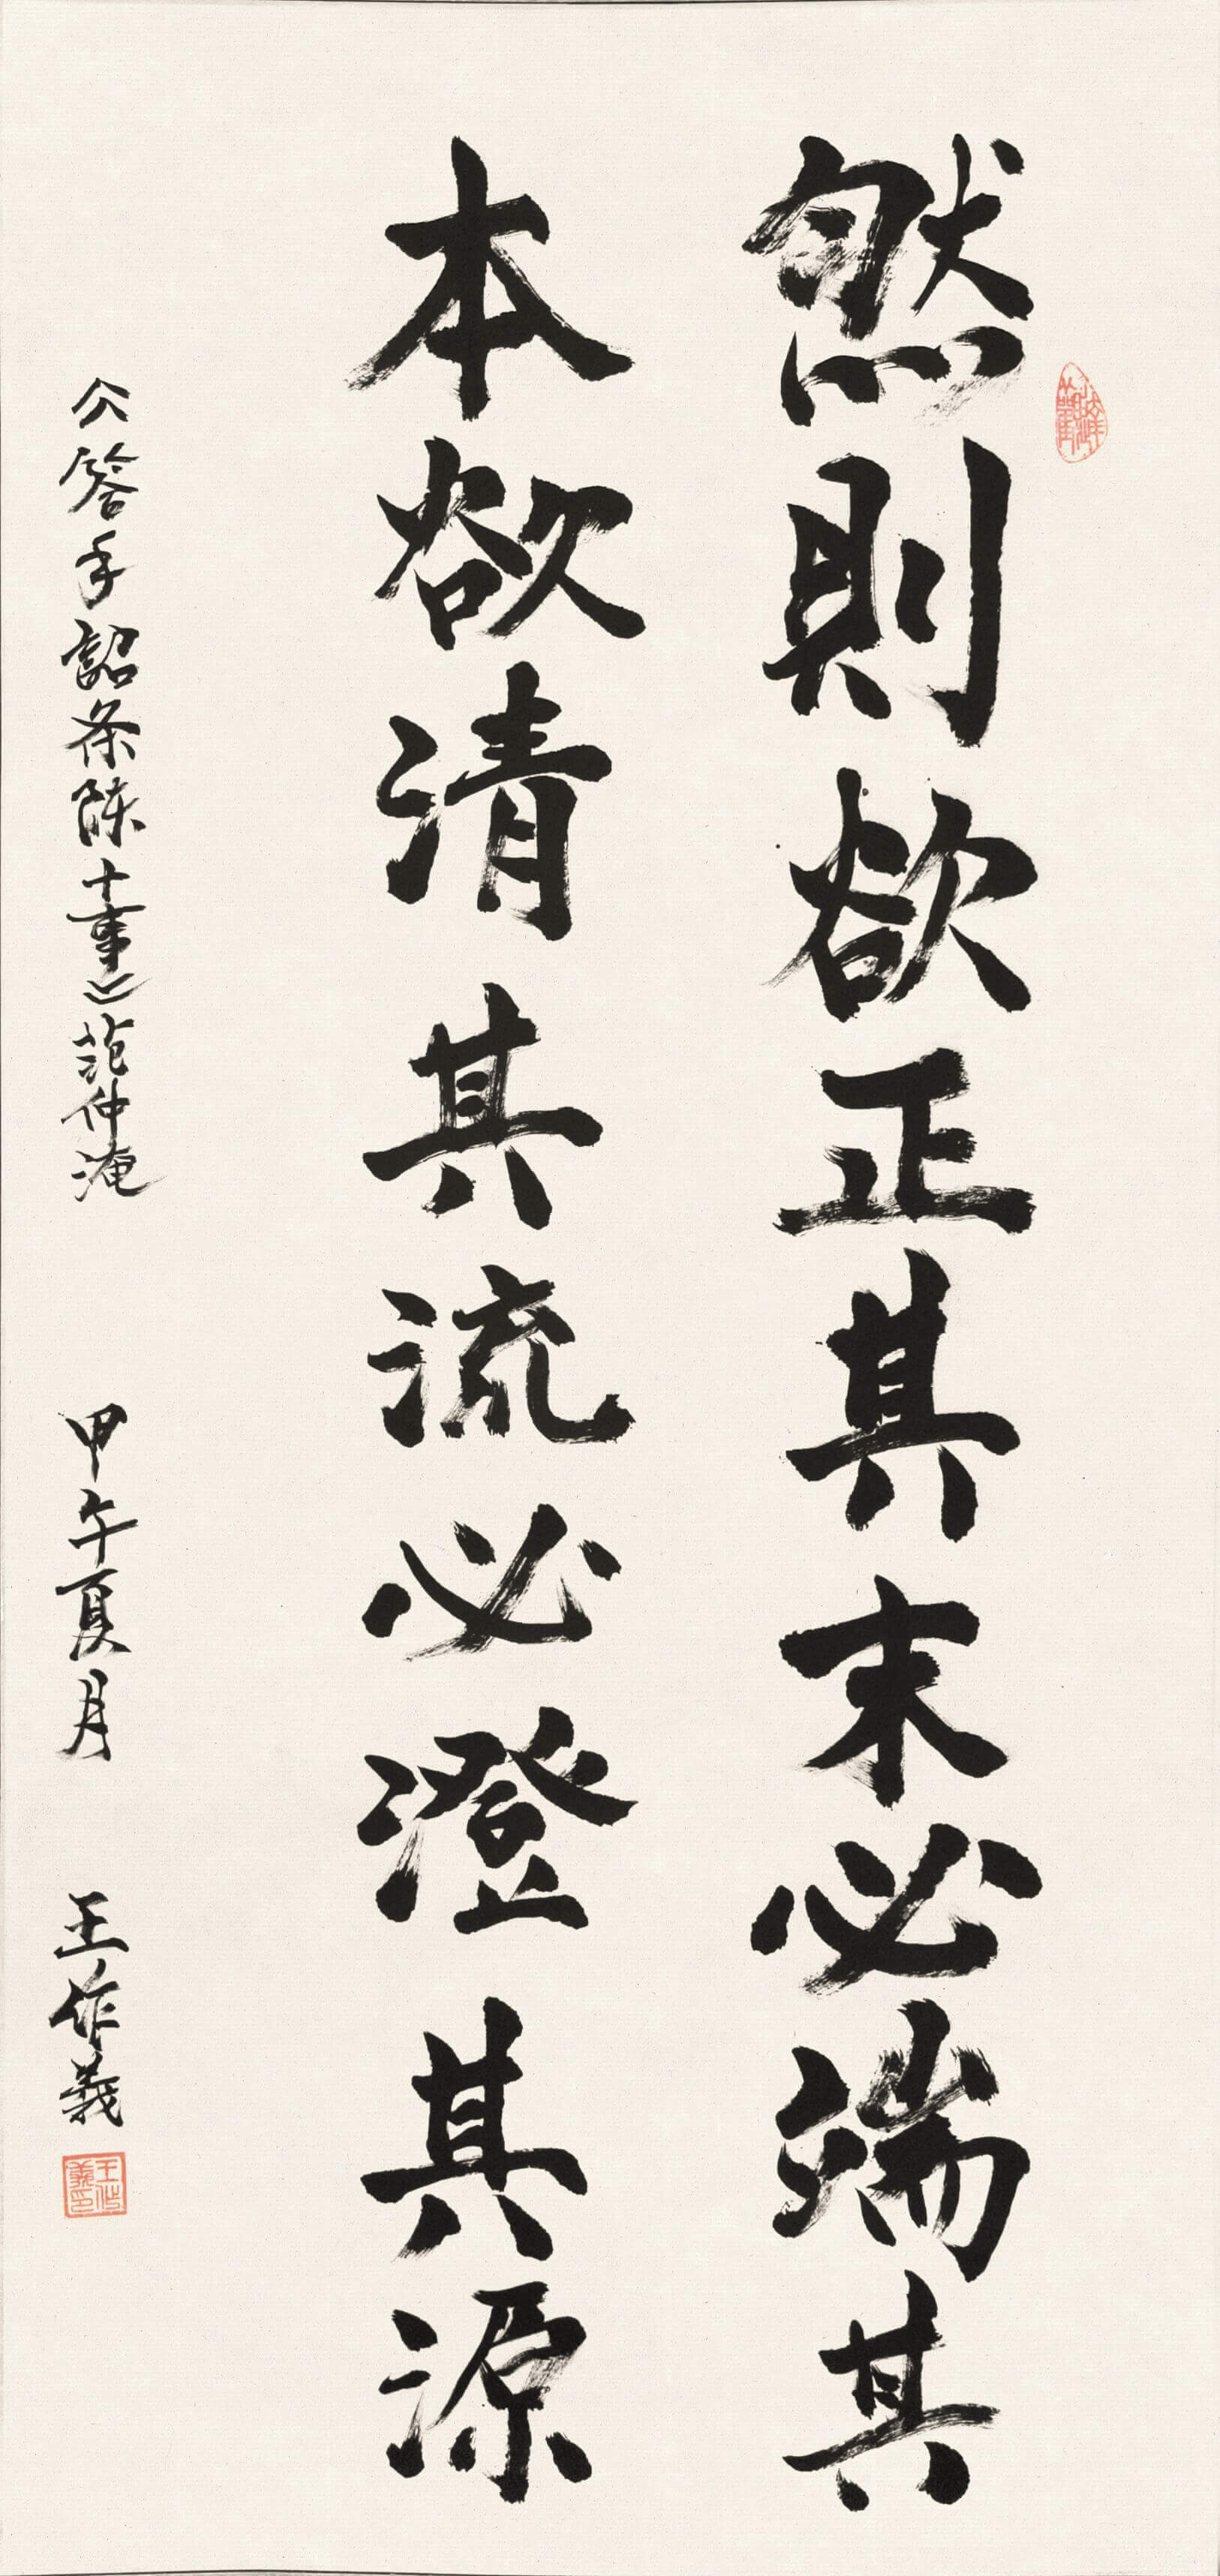 然則欲正其末必端其
本欲清其流必澄其源
《答手詔条陈十事》范仲淹 甲午夏月 王作義
王作義印